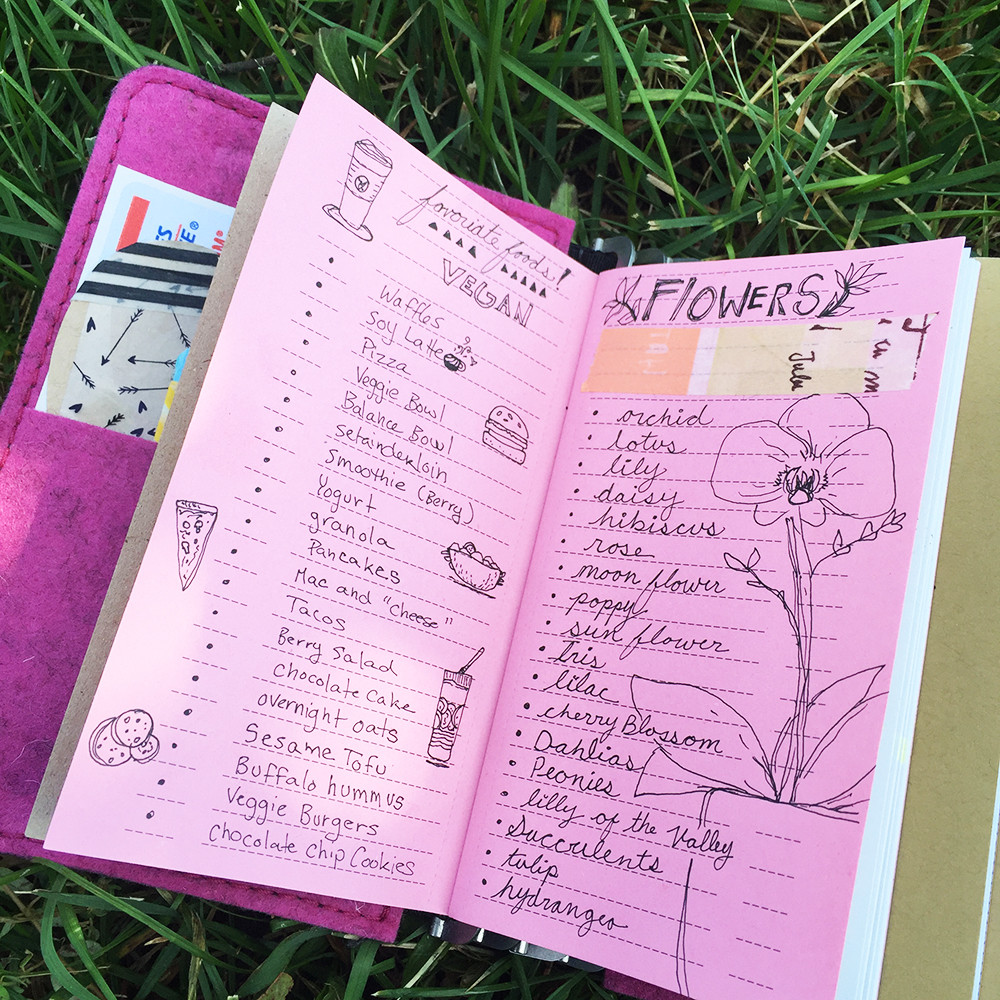 favoriate foods!
VEGAN
Waffles
Soy Latte
Pizza
Veggie Bowl
Balance Bowl
setainderloin
Smoothie (Berry)
Yogurt
granola
Pancakes
Mac and "Cheese"
Tacos
Berry Salad
Chocolate Cake
overnight oats
Sesame Tofu
Buffalo hummus
Veggie Burgers
Chocolate Chip Cookies
FlOWERS
July
orchid
lotus
lily
daisy
hibiscus
rose
moon flower
poppy
sun flower
Iris
lilac
cherry Blossom
Dahlias
Peonies
lilly of the Valley
Succulents
tulip
hydrangea